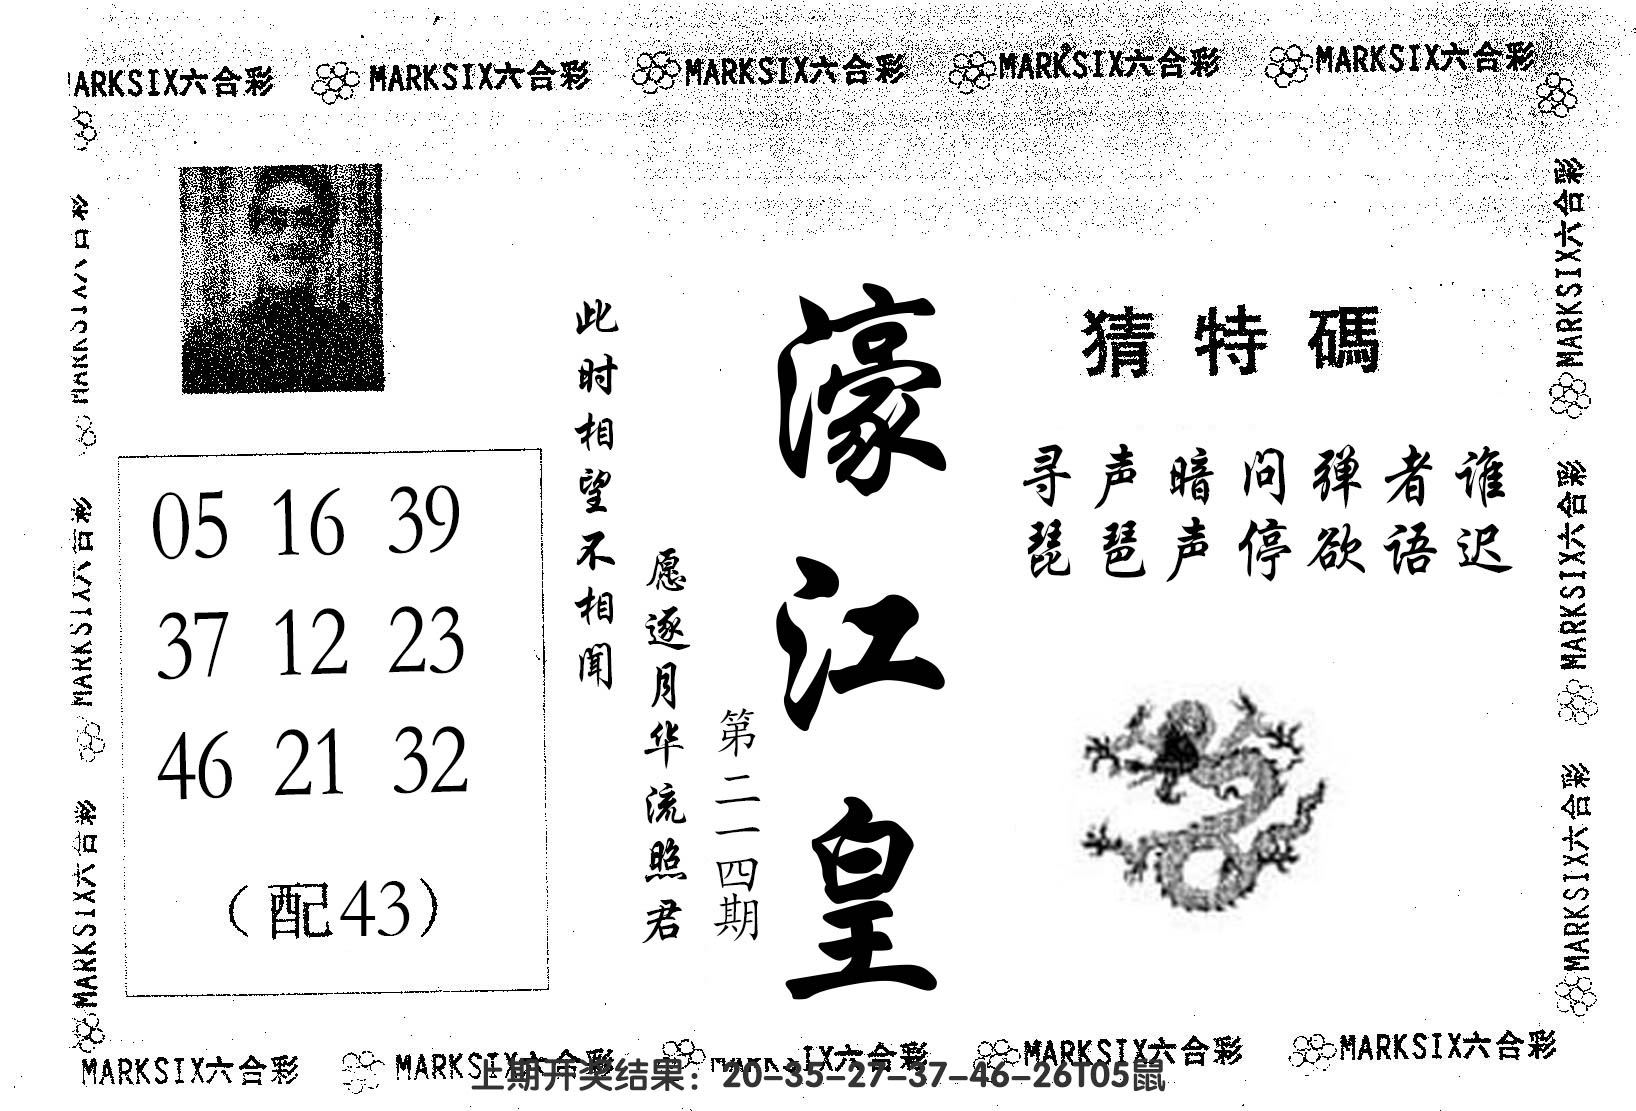 MARKSIX六合彩 MARKSIX六合彩 MARKSIX六合彩 MARKSIX六合彩 MARKSIX六合彩
MARKSIX六合彩
MARKSIX六合彩
MARKSIX六合彩
05 16 39
37 12 23
46 21 32
（配43）
此时相望不相闻
愿逐月华流照君
第二一四期
濠江皇
猜特碼
寻声暗问弹者谁
琵琶声停欲语迟
MARKSIX六合彩
MARKSIX六合彩
MARKSIX六合彩
MARKSIX六合彩 MARKSIX六合彩 MARKSIX六合彩 MARKSIX六合彩 MARKSIX六合彩
上期开奖结果：20-35-27-37-46-26T05鼠